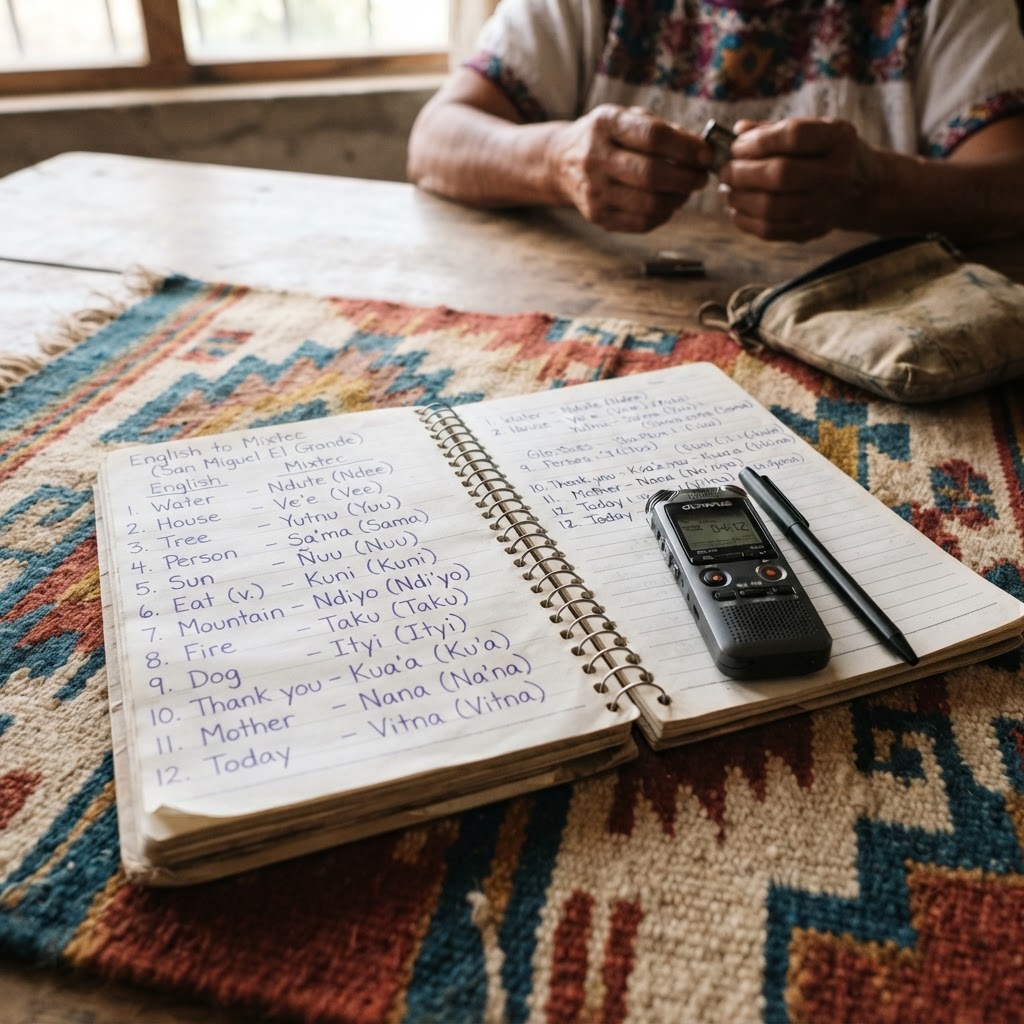 English to Mixtec
(San Miguel El Grande)
English Mixtec
1. Water – Ndute (Ndee)
2. House – Ve'e (Vee)
3. Tree – Yutnu (Yuu)
4. Person – Sa'ma (Sama)
5. Sun – Ñuu (Nuu)
6. Eat (v.) – Kuni (Kuni)
7. Mountain – Ndiyo (Ndi'yo)
8. Fire – Taku (Taku)
9. Dog – Ityi (Ityi)
10. Thank you – Kua'a (Ku'a)
11. Mother – Nana (Na'na)
12. Today – Vitna (Vitna)
1. Water – Ndute (Ndee)
2. House –
9.
10. Thank you –
11. Mother – Nana
12. Today
12. Today
OLYMPUS